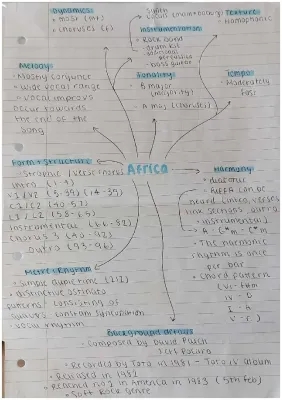 Dynamics:
• most (mf)
• choruses (f)
• Synth
Texture:
• Homophonic
Instrumentation:
• Rock band
• drum kit
• additional
percussion
• bass guitar
Melody:
• Mostly conjunct
• wide vocal range
• vocal improvs
occur towards
the end of the
song
Tonality:
• B major
(majority)
• A maj (choruses)
Tempo:
• Moderately
fast
Form + Structure:
• Strophic / verse chorus
Intro (1-4)
V1/V2 (5-39) (14-39)
C1/C2 (40-57)
L1/L2 (58-65)
Instrumental (66-82)
Chorus 3 (40-92)
Outro (93-96)
Africa
Harmony:
• diatonic
• Riff A can be
heard (intro, verses
link sections, outro,
instrumental)
→ A - G#m - C#m
• The harmonic
rhythm is once
per bar
• Chord pattern
(vi - F#m
IV - D
I - A
V - E)
Metre + Rhythm
• Simple duple time (2/2)
• distinctive ostinato
patterns consisting of
quavers constant syncopation
vocal rhythm
Background details
• Composed by David Paich
Jeff Porcaro
• Recorded by Toto in 1981 - Toto IV album
• Released in 1982
• Reached no.1 in America in 1983 (5th Feb)
• Soft Rock genre